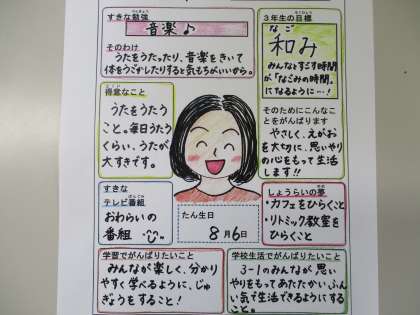 すきな勉強
べんきょう
音楽♪
そのわけ
うたをうたったり、音楽をきいて
体をうごかしたりすると気もちがいいから。
3年生の目標
もくひょう
なご
和み
みんなとすごす時間
が「なごみの時間」
になるように…!
得意なこと
とくい
うたをうたう
こと。毎日うたう
くらい、うたが
大すきです。
そのためにこんなこ
とをがんばります
やさしく、えがお
を大切に、思いやり
の心をもって生活
します!!
すきな
テレビ番組
ばんぐみ
おわらいの
番組
たん生日
8月6日
しょうらいの夢
ゆめ
・カフェをひらくこと
・リトミック教室を
ひらくこと
学習でがんばりたいこと
みんなが楽しく、分かり
やすく学べるように、じゅ
ぎょうをすること!
学校生活でがんばりたいこと
3-1のみんなが思い
やりをもってあたたかいふん
い気で生活できるようにする
こと。